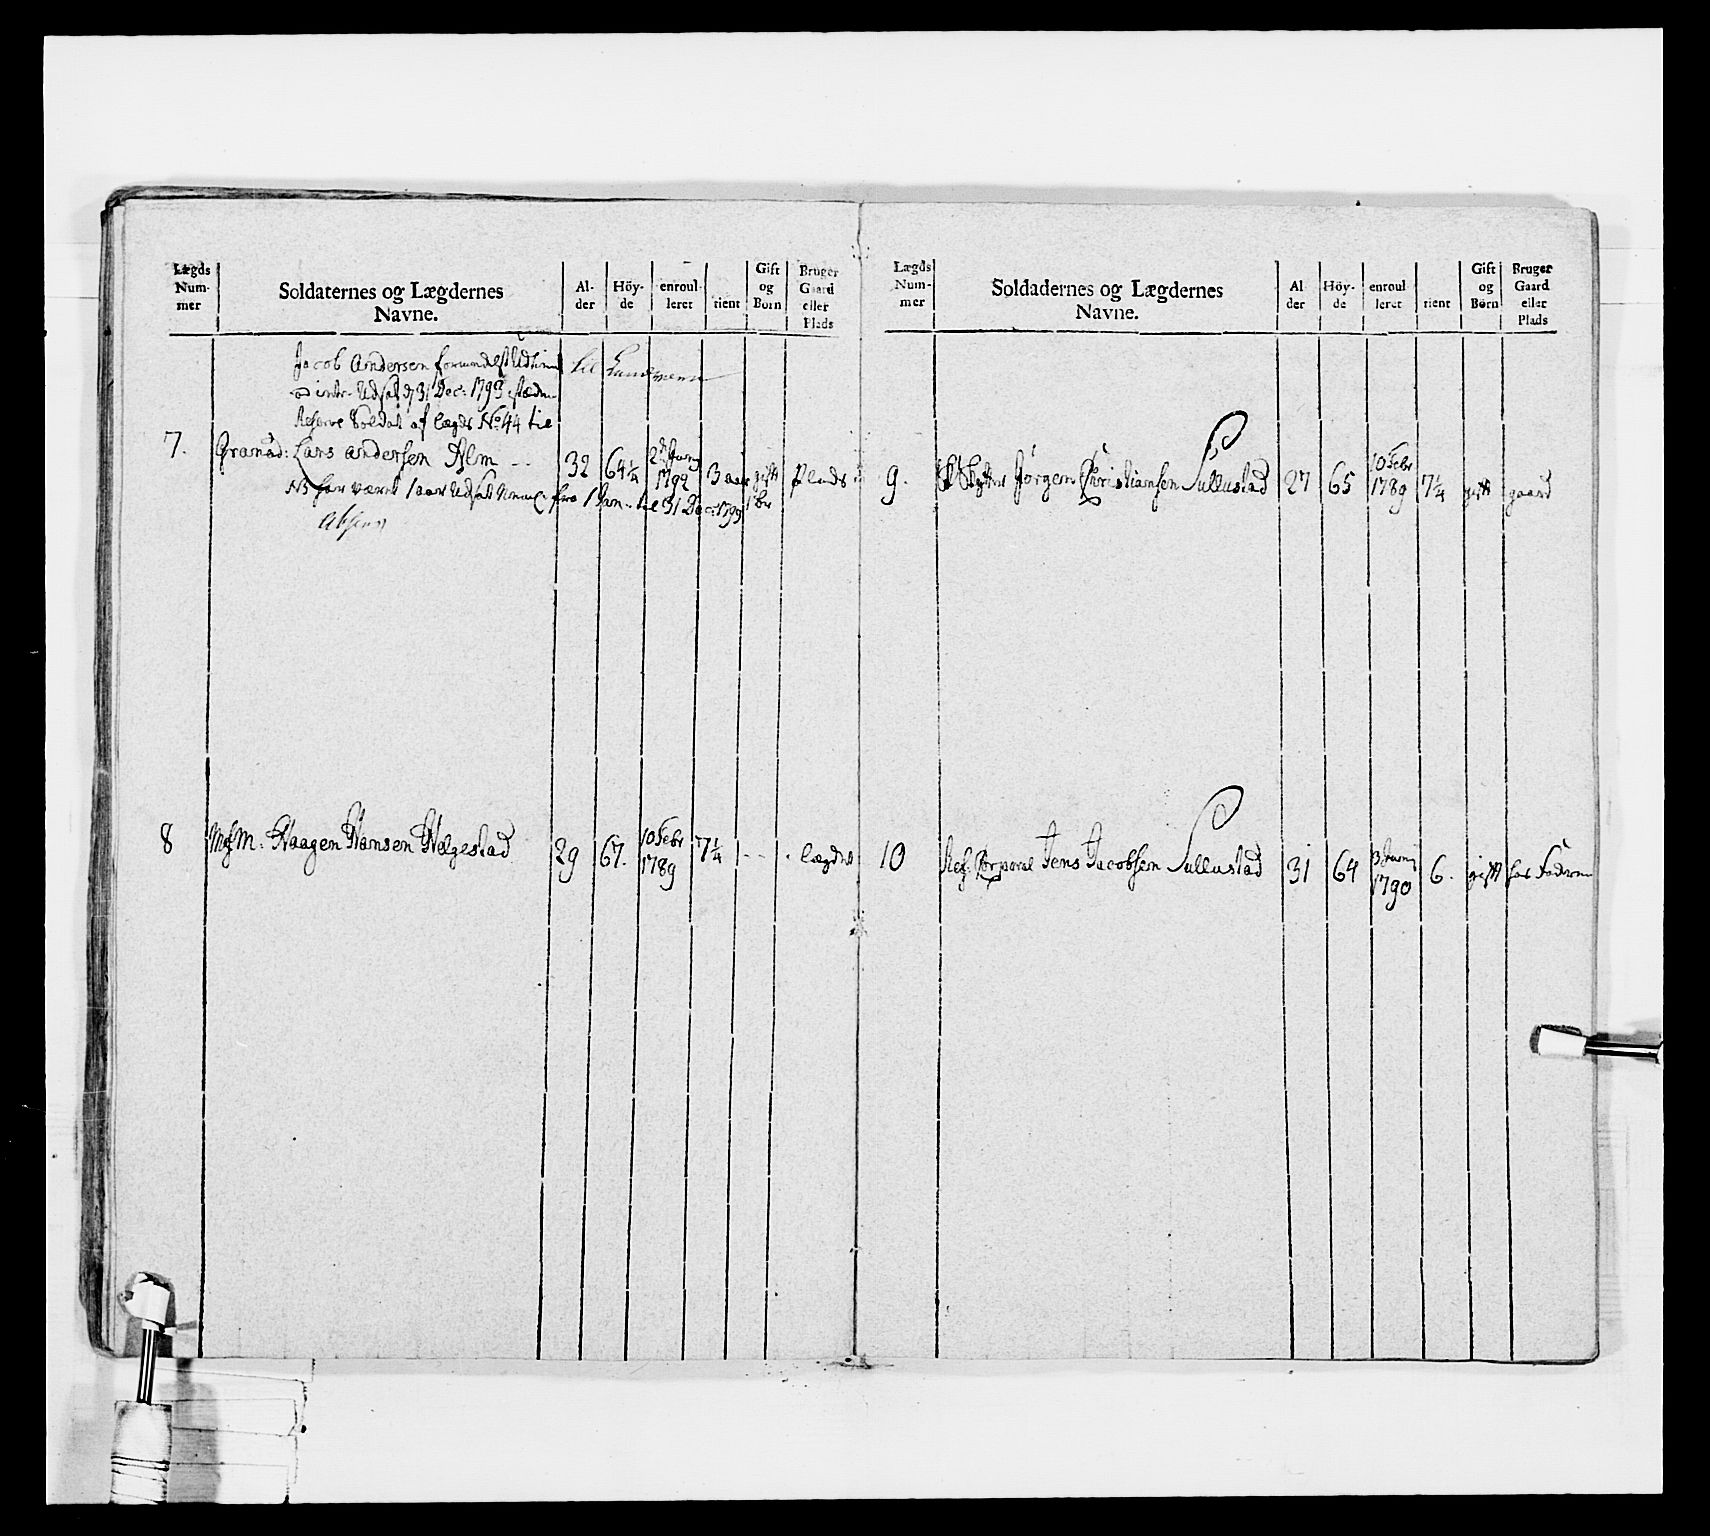 Lægds
Num-
mer
Soldaternes og Lægdernes
Navne.
Al-
der
Höy-
de
enroul-
leret
tient
Gift
og
Børn
Bruger
Gaard
eller
Plads
Jacob Andersen til
Udsat d 31 Dec: 1793
Reserve Soldat af Lægds No 44 til
7. Granad: Lars Andersen Alm - - 32 64 1/4 2 Juny 1792 3 aar gift Plads
NB har været 1 aar Udsat fra 1 Jan. til 31 Dec: 1799 1 bn
8 M: Haagen Hansen Helgestad 29 67. 10 Febr 1789 7 1/4 - - - Lægdet
Lægds
Num-
mer
Soldadernes og Lægdernes
Navne.
Al
der
Höy-
de
enroul
leret
tient
Gift
og
Børn
Bruger
Gaard
eller
Plads
9. Jørgen Christiansen Sullustad 27 65 10 Febr 1789 7 1/4 gift gaard
10 Corporal Jens Jacobsen Sullustad 31 64 3 Juny 1790 6. gift hos Faderen